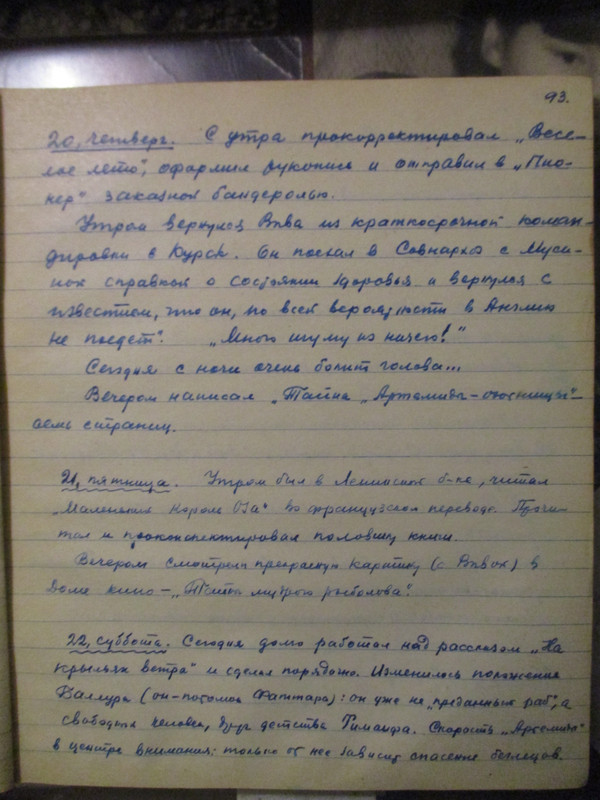 93.
20, четверг. С утра прокорректировал „Весе-
лое лето“, оформил рукопись и отправил в „Пио-
нер“ заказной бандеролью.
Утром вернулся Вива из краткосрочной коман-
дировки в Курск. Он поехал в Совнархоз с Муси-
ной справкой о состоянии здоровья и вернулся с
известием, что он, по всей вероятности в Англию
не поедет. „Много шуму из ничего!“
Сегодня с ночи очень болит голова...
Вечером написал „Тайна „Артемиды-охотницы“ –
семь страниц.
21, пятница. Утром был в Ленинской б-ке, читал
„Маленький король Оза“ во французском переводе. Прочи-
тал и проконспектировал половину книги.
Вечером смотрели прекрасную картину (с Вивой) в
Доме кино – „Тайны мудрого рыболова“.
22, суббота. Сегодня дома работал над рассказом „На
крыльях ветра“ и сделал порядком. Изменилось положение
(он – потомок): он уже не „преданный раб“, а
свободный человек, друг детства. Скорость „Артемиды“
в центре внимания; только от нее зависит спасение беглецов.